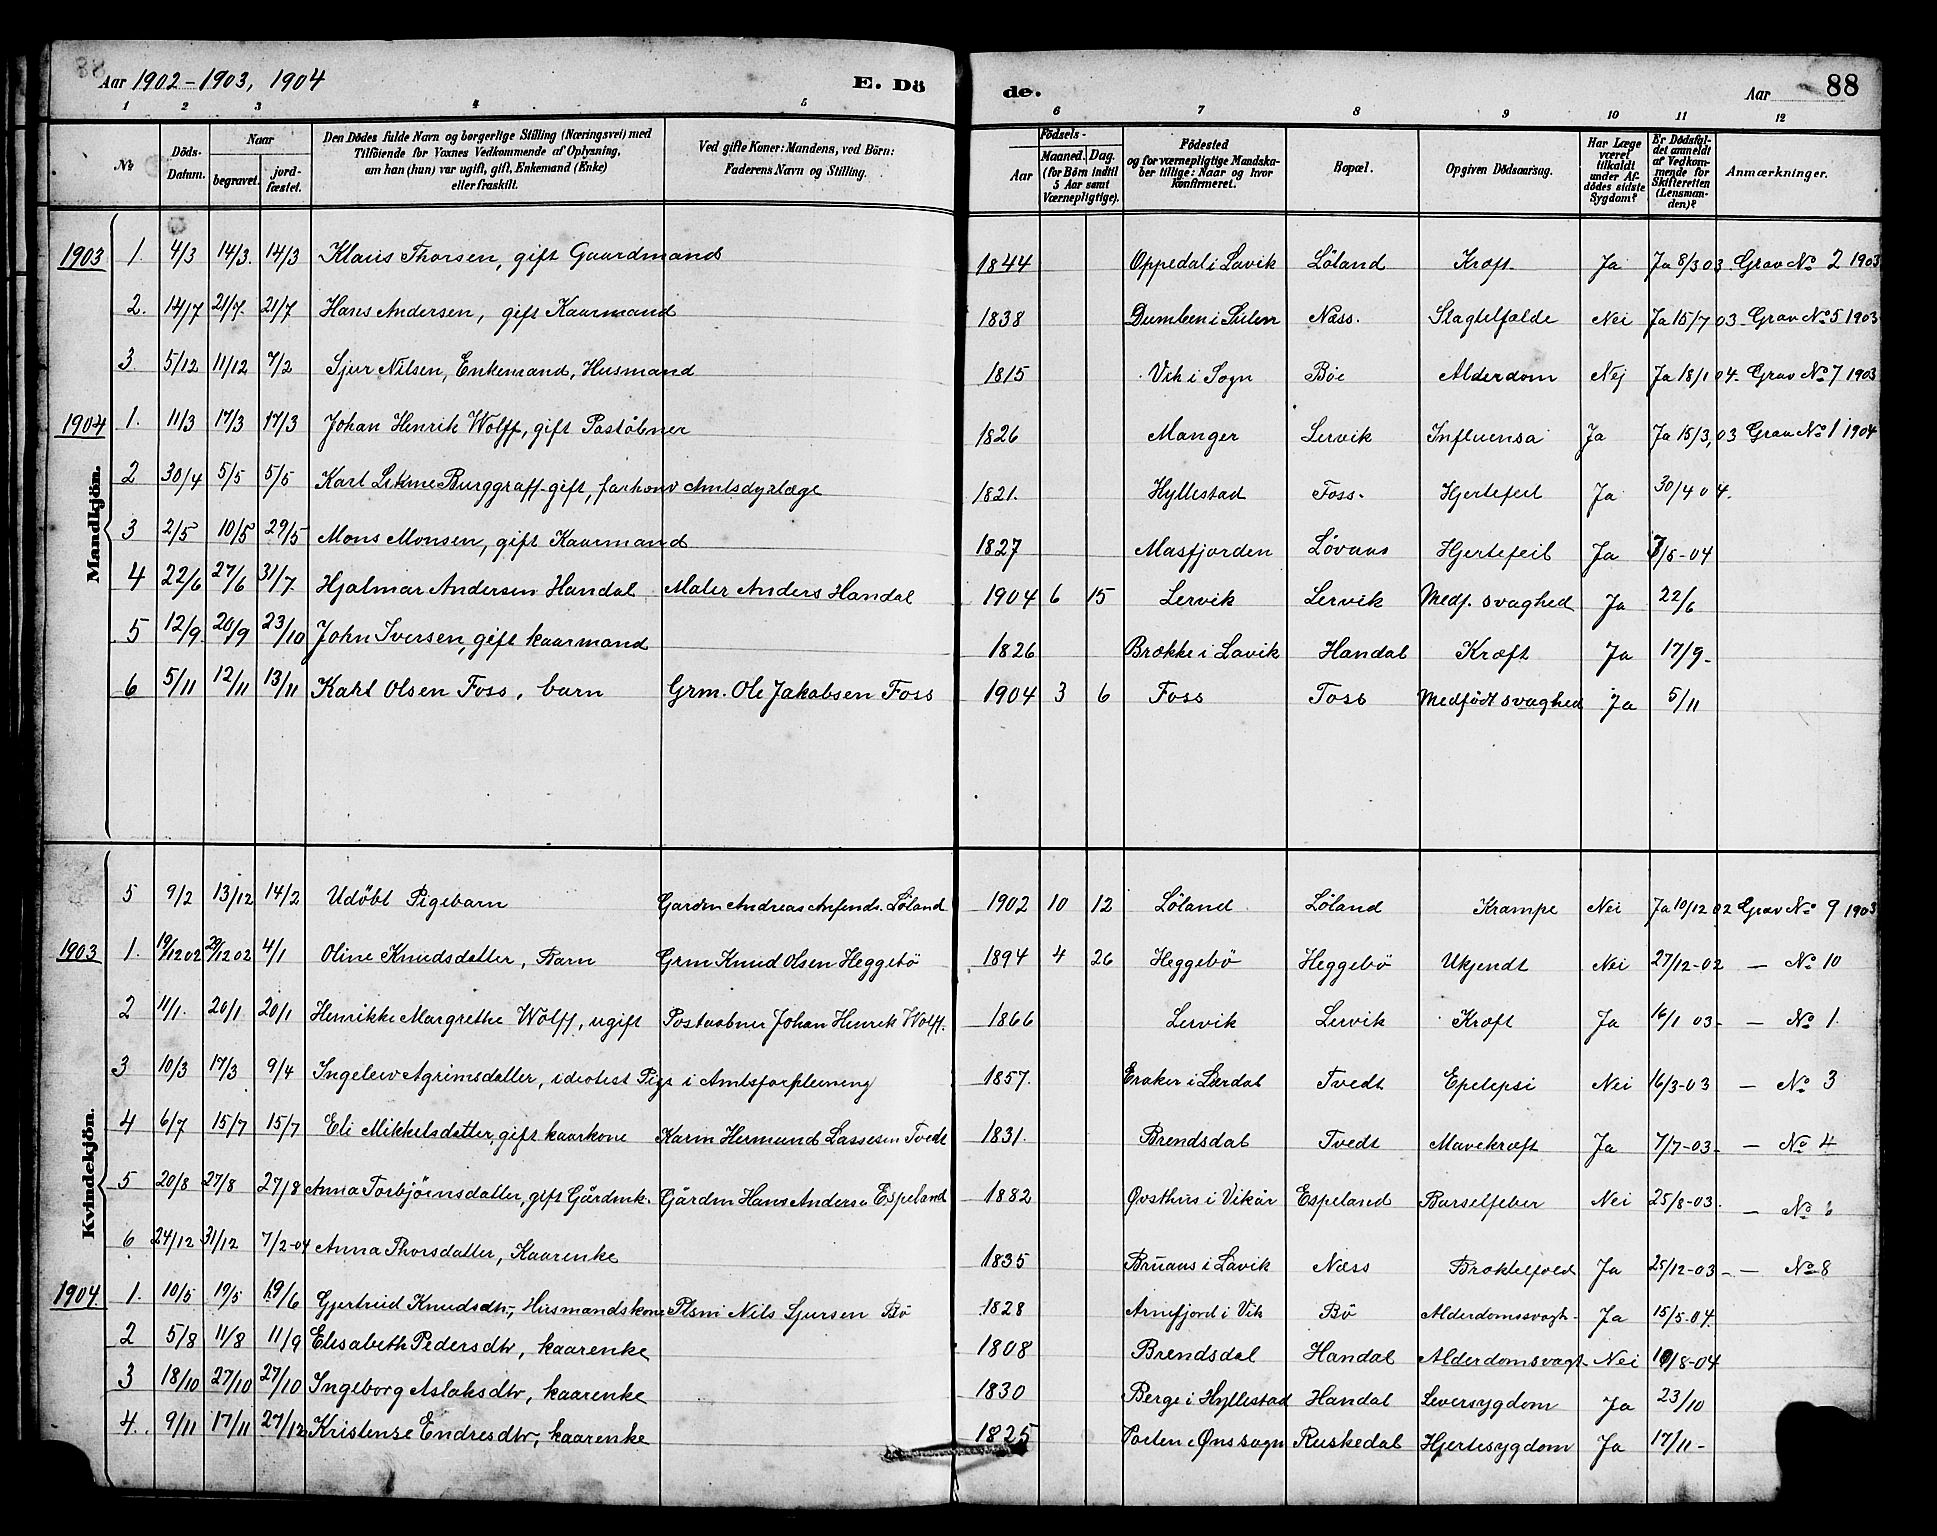 88
Aar 1902-1903, 1904
E. Dö
de.
Aar
88
1 2 3 4 5 6 7 8 9 10 11 12
No
Döds-Datum.
Naar
begravet.
jord-fæstet.
Den Dödes fulde Navn og borgerlige Stilling (Næringsvei) med
Tilföiende for Voxnes Vedkommende af Oplysning,
om han (hun) var ugift, gift, Enkemand (Enke)
eller fraskilt.
Ved gifte Koner: Mandens, ved Börn:
Faderens Navn og Stilling.
Födsels-
Aar
Maaned. Dag.
(for Börn indtil
5 Aar samt
Værnepligtige).
Födested
og for værnepligtige Mandska-
ber tillige: Naar og hvor
Konfirmeret.
Bopæl.
Opgiven Dödsaarsag.
Har Læge
været
tilkaldt
under Af-
dödes sidste
Sygdom?
Er Dödsfal-
det anmeldt
af Vedkom-
mende for
Skifteretten
(Lensman-
den)?
Anmærkninger.
Mandkjön.
1903 1. 4/3 14/3. 14/3 Klaus Thorsen, gift Gaardmand 1844 Oppedal i Lavik Löland Kræft Ja Ja 8/3 03. Grav No 2 1903
2. 14/7 21/7. 21/7 Hans Andersen, gift Kaarmand 1838 Dumben i Sulen Næss. Slagtilfælde Nei Ja 15/7 03. Grav No 5 1903
3 5/12 11/12 7/2 Sjur Nilsen, Enkemand, Husmand 1815 Vik i Sogn Böe Alderdom Nej Ja 18/1 04. Grav No 7 1903
1904 1. 11/3 17/3 17/3 Johan Henrik Wolff, gift Postöbner 1826 Manger Lervik Influensa Ja Ja 15/3, 03 Grav No 1 1904
2 30/4 5/5 5/5 Karl Burggraff gift, forhenv Amtsdyrlæge 1821. Hyllestad Foss. Hjertefeil Ja 30/4 04.
3 2/5 10/5 29/5 Mons Monsen, gift Kaarmand 1827 Masfjorden Lövaas Hjertefeil Ja 7/5-04
4 22/6 27/6 31/7 Hjalmar Andersen Handal Maler Anders Handal 1904 6 15 Lervik Lervik Medf. svaghed Ja 22/6
5 12/9. 20/9 23/10 John Iversen, gift kaarmand 1826 Brække i Lavik Handal Kræft Ja 17/9-
6 5/11 12/11 13/11 Karl Olsen Foss, barn Grm. Ole Jakobsen Foss 1904 3 6 Foss Foss Medfödt svaghed Ja 5/11
Kvindekjön.
5 9/2 13/12 14/2 Udöbt Pigebarn Gardm Andreas Anfinds. Löland 1902 10 12 Löland Löland Krampe Nei Ja 10/12 02 Grav No 9 1903
1903 1. 19/12 02 29/12 02 4/1 Oline Knudsdatter, Barn Grm Knud Olsen Heggebö 1894 4 26 Heggebö Heggebö Ukjendt Nei 27/12-02 — No 10
2 11/1. 20/1 20/1 Henrikke Margrethe Wolff, ugift Postaabner Johan Henrik Wolff. 1866 Lervik Lervik Kræft Ja 16/1 03- — No 1.
3 10/3 17/3 9/4 Ingeleiv Agrimsdatter, idiotist Pige i Amtsforpleining 1857. Eraker i Lærdal Tvedt Epelepsi Nei 16/3-03 — No 3
4 6/7 15/7 15/7 Eli Mikkelsdatter, gift kaarkone Karm Hermund Lassesen Tvedt 1831. Brendsdal Tvedt Mavekræft Ja 7/7-03- — No 4
5 20/8 27/8 27/8 Anna Torbjörnsdatter, gift Gårdmk. Gårdm Hans Anders. Espeland 1882 Øvsthus i Vikör Espeland Barselfeber Nei 25/8-03. — No 6
6 24/12 31/12 7/2-04 Anna Thorsdatter, Kaarenke 1835 Bruaas i Lavik Næss Ja 25/12-03- — No 8
1904. 1. 10/5 19/5 19/6 Gjertrud Knudsdtr, Husmandskone Plsm Nils Sjursen Bö 1828 Arnefjord i Vik Bö Alderdomssvagh- Ja 15/5-04.
2 5/8 11/8 11/9 Elisabeth Pedersdtr, kaarenke 1808 Brendsdal Handal Alderdomsvagt- Nei /8-04
3 18/10 27/10 27/10 Ingeborg Aslaksdtr, kaarenke 1830 Berge i Hyllestad Handal Leversygdom Ja 23/10
4. 9/11 17/11 27/12 Kristense Endresdtr, kaarenke 1825 Ruskedal Hjertesygdom Ja 17/11-